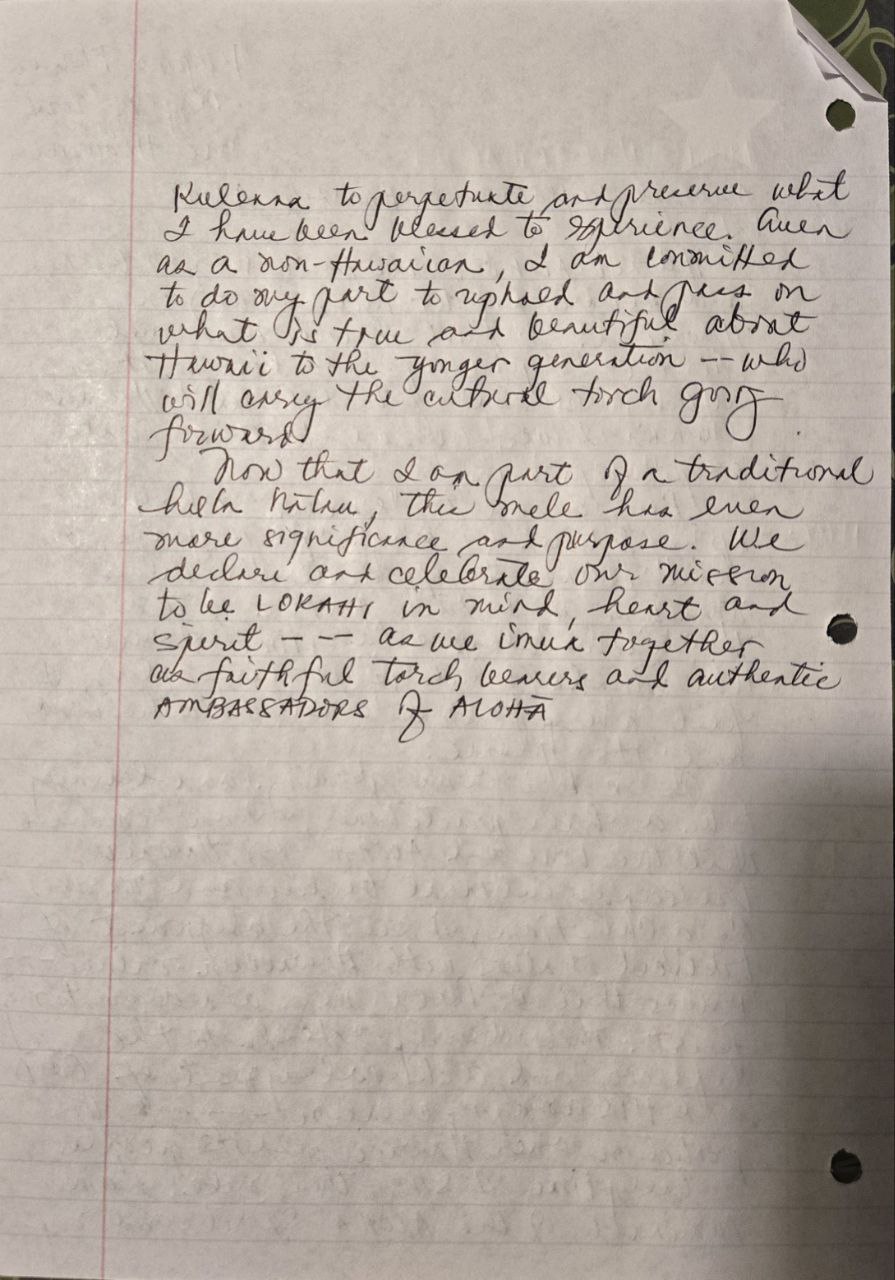 Kuleana to perpetuate and preserve what
I have been blessed to experience. Even
as a non-Hawaiian, I am committed
to do my part to uphold and pass on
what is true and beautiful about
Hawaii to the yonger generation -- who
will carry the cultural torch going
forward.
Now that I am part of a traditional
hula hālau, this mele has even
more significance and purpose. We
declare and celebrate our mission
to be LOKAHI in mind, heart and
spirit --- as we imua together
as faithful torch bearers and authentic
AMBASSADORS of ALOHA